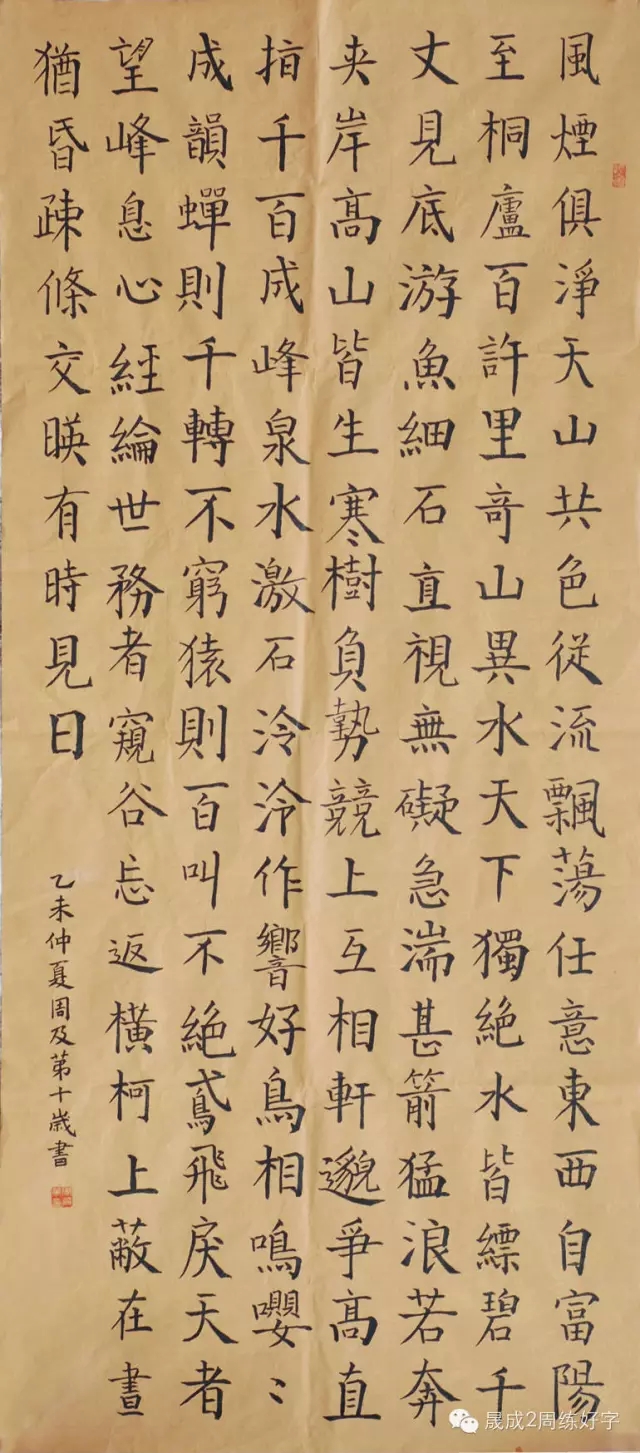 風煙俱淨天山共色従流飄蕩任意東西自富陽
至桐廬百許里奇山異水天下獨絶水皆縹碧千
丈見底游魚細石直視無礙急湍甚箭猛浪若奔
夹岸髙山皆生寒樹負勢競上互相軒邈爭髙直
指千百成峰泉水激石泠泠作響好鳥相鳴嚶〻
成韻蟬則千轉不窮猿則百叫不絶鳶飛戾天者
望峰息心經綸世務者窺谷忘返横柯上蔽在晝
猶昏疎條交暎有時見日
乙未仲夏周及第十嵗書
晟成2周练好字